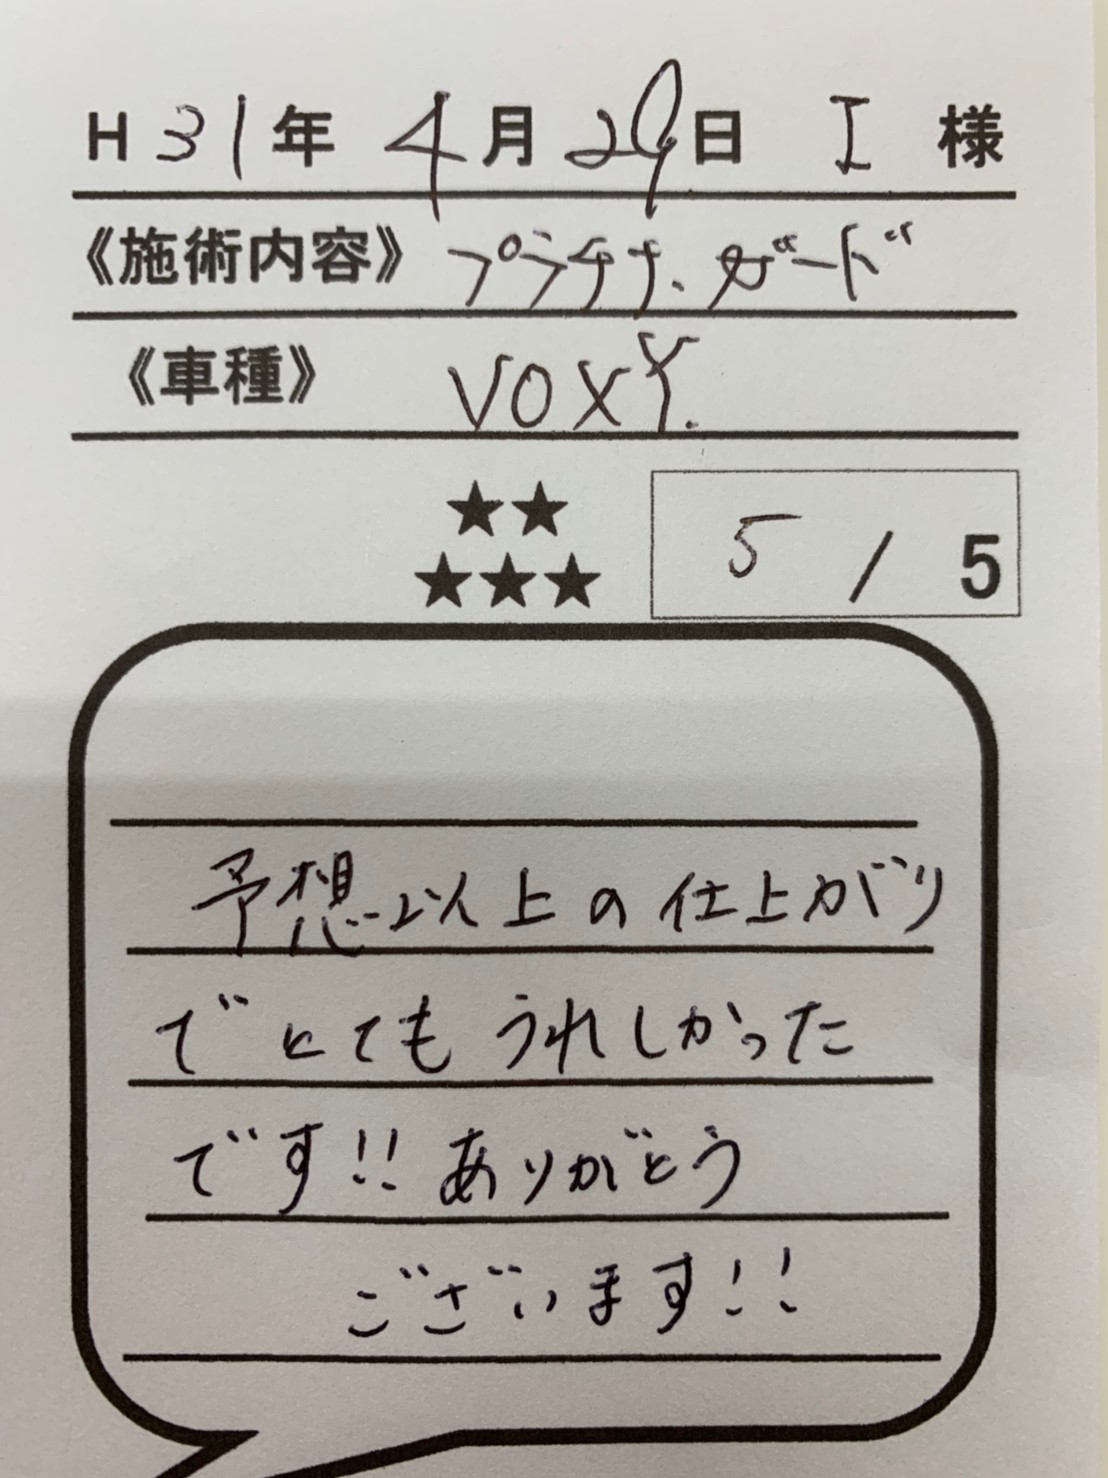 H31年 4月29日 I 様
《施術内容》 プラチナ.ガード
《車種》 VOXY.
★★
★★★ 5 / 5
予想以上の仕上がり
でとてもうれしかった
です!! ありがとう
ございます!!